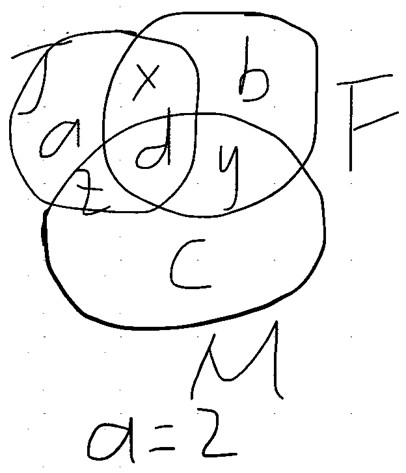 J x b F
a d y
z
C
M
a=2